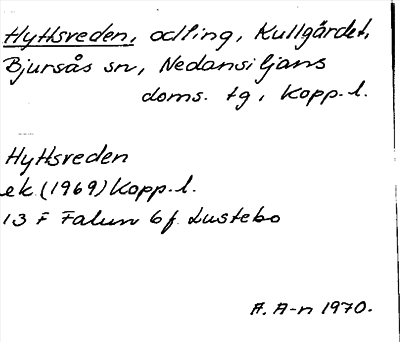 Hyttsveden, odling, Kullgärdet,
Bjursås sn, Nedansiljans
doms. tg, Kopp. l.
Hyttsveden
ek. (1969) Kopp. l.
13 F Falun 6 f. Lustebo
A. A-n 1970.